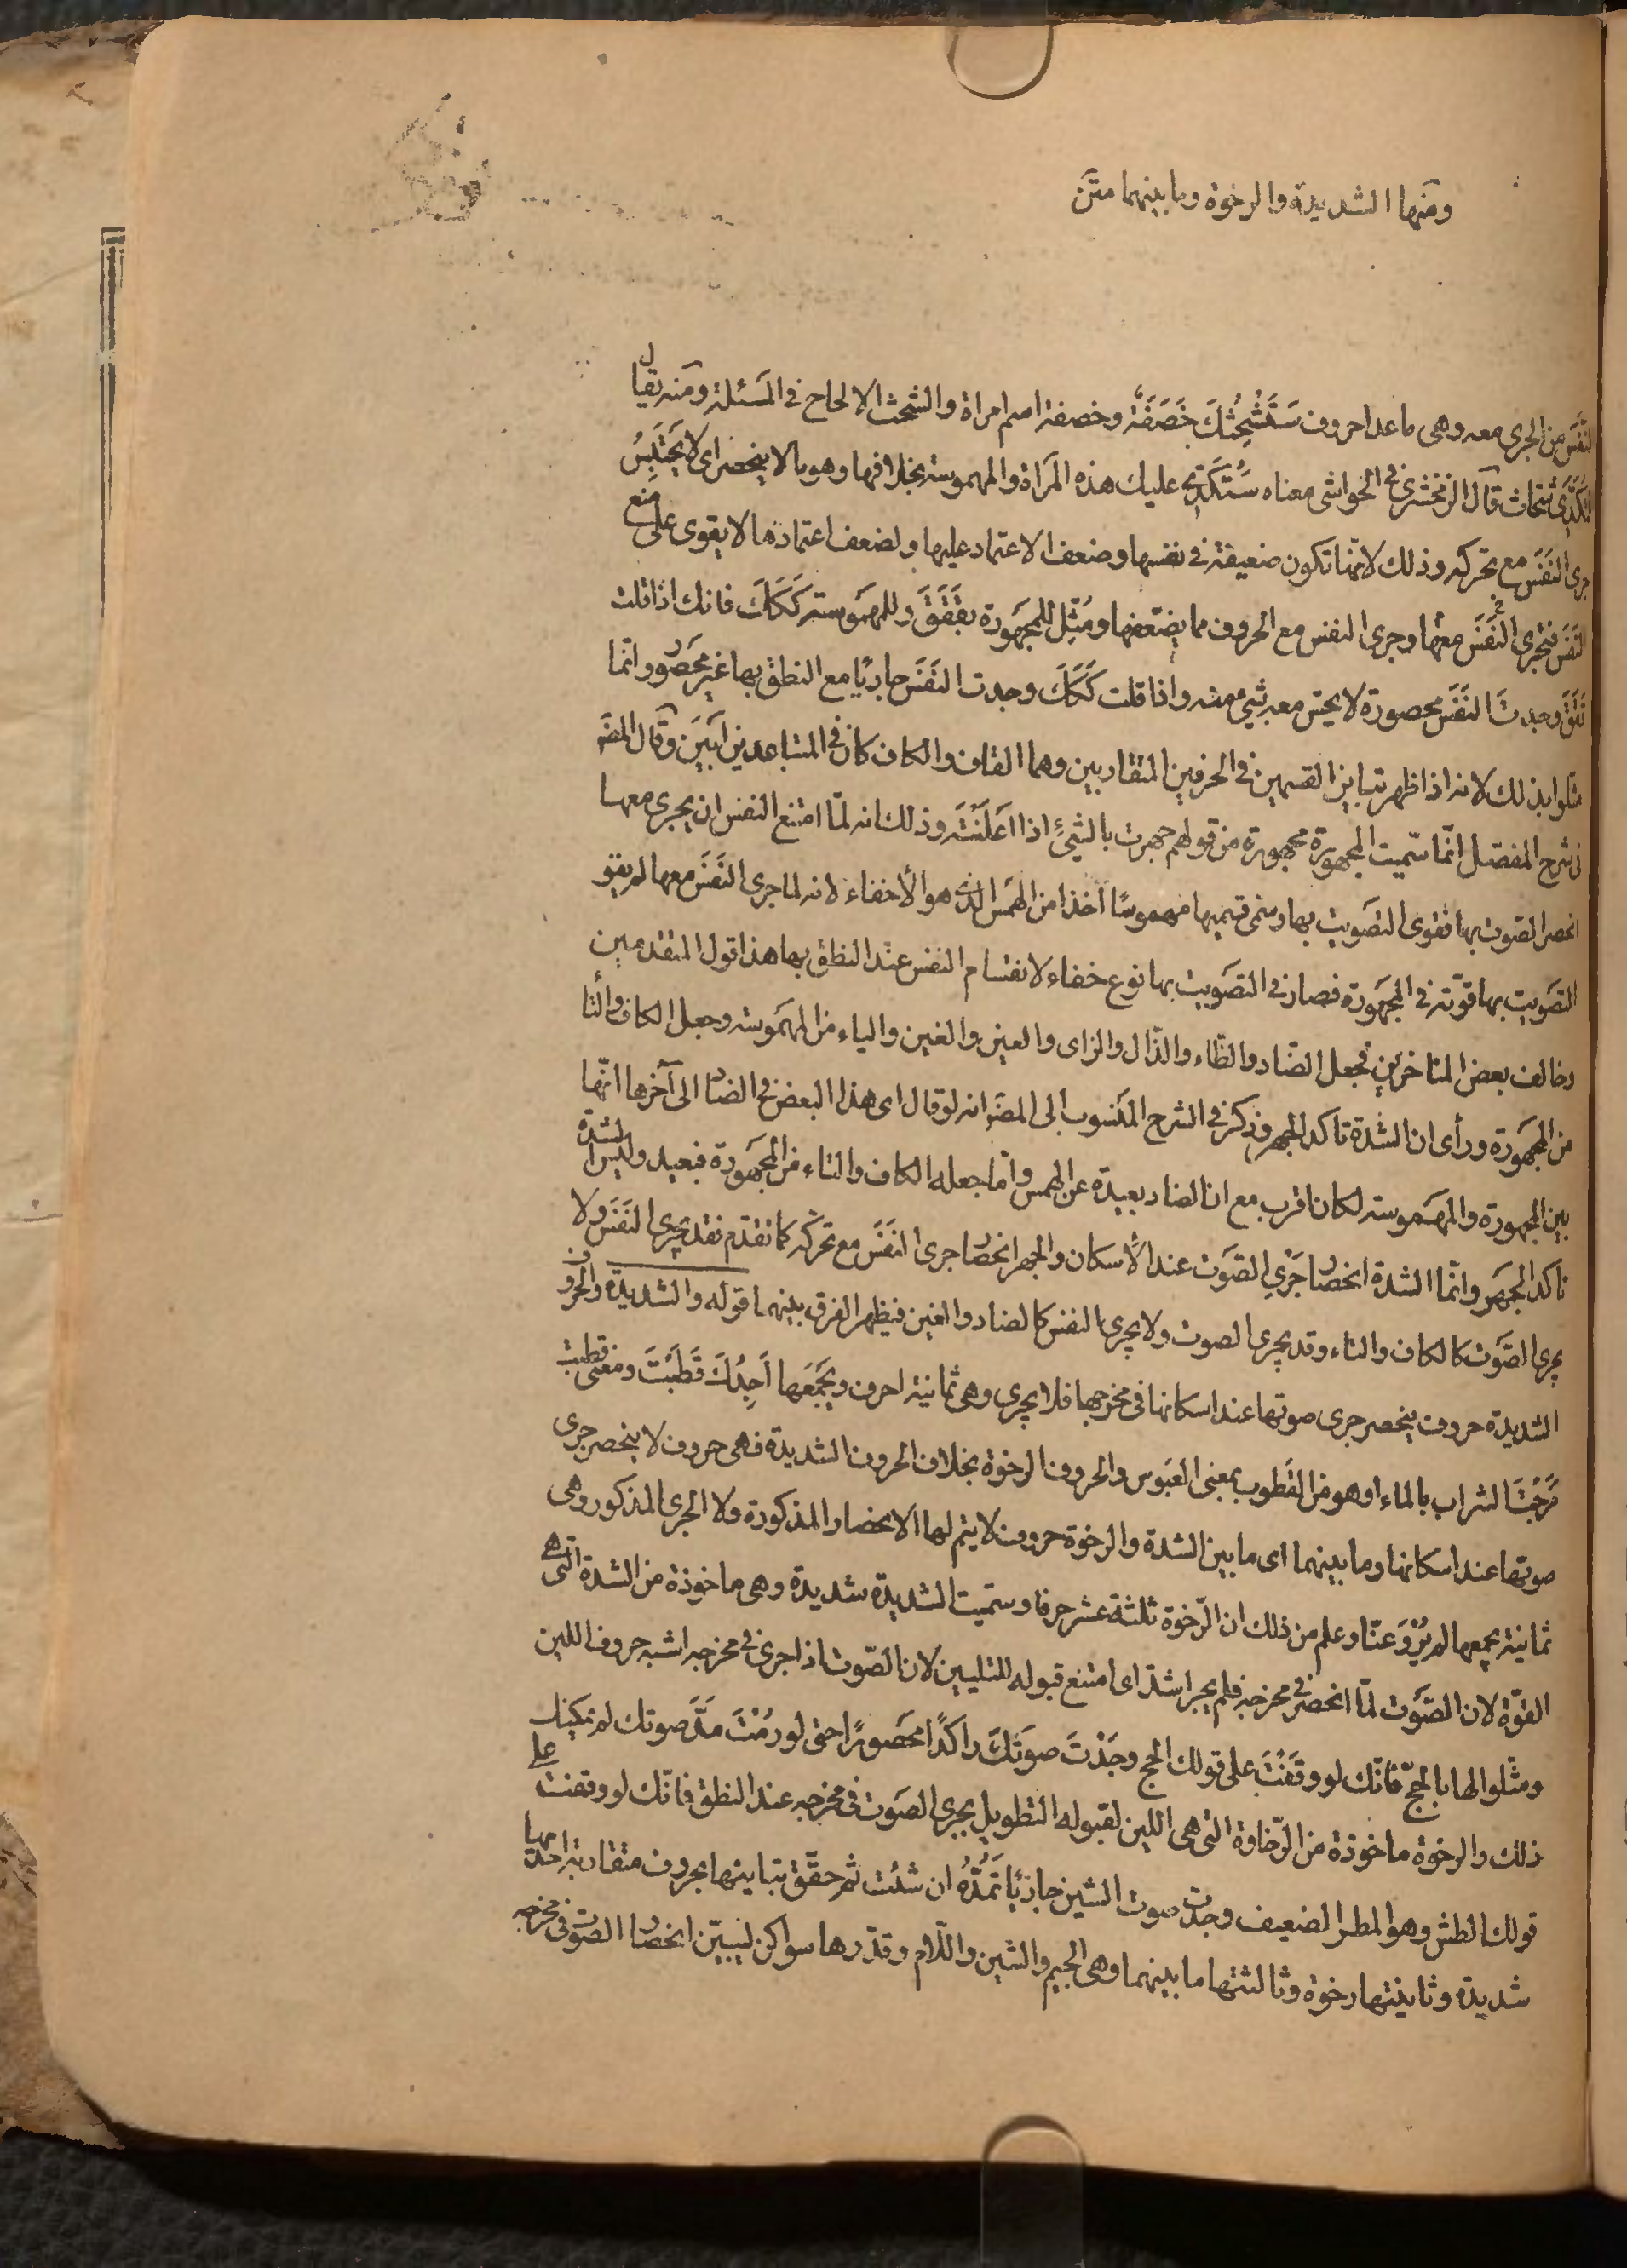 ومنها الشديدة والرخوة وما بينهما متن
النَّفَس من الجرى معه وهى ما عدا حروف سَتَشْحَثُكَ خَصَفَة وخصفة اسم امراة والشحث الالحاح فى المسئلة ومنه يقال
للمُكَدّى شحاث قال الزمخشرى فى الحواشى معناه سَتُكَدّى عليك هذه المراة والمهموسة بخلافها وهو ما لا ينحصر اى لا يحتبسُ
جرى النَفَس مع تحركه وذلك لانّها تكون ضعيفة فى نفسها وضعف الاعتماد عليها ولضعف اعتمادها لا يقوى على منع
النَفَس فيجرى النَفَسَ معها وجرى النفس مع الحروف مما يضعّفها ومُثّل للمجهورة بقَقَقَ وللمهموسة كَكَكَ فانك اذا قلت
قَقَقَ وجدتَ النَفَسَ محصورة لا يحسّ معه شئ منه واذا قلت كَكَكَ وجدت النَفَس جاريًا مع النطق بها غير محصور وانما
مثلوا بذلك لانه اذا ظهر تباين القسمين فى الحرفين المتقاربين وهما القاف والكاف كان فى المتباعدين ابَينَ وقال المصَ
فى شرح المفصّل انّما سمّيت المجهورة مجهورة من قولهم جهرت بالشئِ اذا اعلَنْتَه وذلك انه لمّا امتنع النفس ان يجرى معها
انحصر الصوت بها فقوى التصويت بها وسمى قسيمها مهموسًا اخذا من الهَمس الذى هو الأخفاء لانه لما جرى النَفَسُ معها لم يقو
التصويت بها قوّته فى المجهورة فصار فى التصويت بها نوع خفاء لانقسام النفس عند النطق بها هذا قول المتقدمين
وخالف بعض المتاخرين فجعل الضّاد والظّاء والذّال والزاى والعين والغين والياء من المهموسة وجعل الكاف والتا
من المجهورة ورأى ان الشدة تاكد الجهر وذكر فى الشرح المنسوب الى المصَ انه لو قال اى هذا البعض فى الضاد الى آخرها انّها
بين المجهورة والمهموسة لكان اقرب مع ان الضاد بعيدة عن الهمس وامّا جعله الكاف والتاء من المجهورة فبعيد وليس الشدة
تاكد الجهر وانّما الشدة انحصار جَرْىِ الصّوت عند الأسكان والجهر انحصار جرى النَفَسَ مع تحركّه كما تقدّم فقد يجرى النَفَس ولا
يجرى الصّوت كالكاف والتاء وقد يجرى الصوت ولا يجرى النفس كالضاد والغين فيظهر الفرق بينهما قوله والشديدة والحروف
الشديدة حروف ينحصر جرى صوتها عند اسكانها فى مخرجها فلا يجرى وهى ثمانية احرف ويجمَعها اَجِدُكَ قَطَبْتَ ومعنى قطبت
مَزَجْتَ الشراب بالماء او هو من القطوب بمعنى العَبوس والحروف الرخوة بخلاف الحروف الشديدة فهى حروف لا ينحصر جرى
صوتها عند اسكانها وما بينهما اى ما بين الشدة والرخوة حروف لا يتم لها الانحصار المذكورة ولا الجرى المذكور وهى
ثمانية يجمعها لم يَرْوِ عنّا وعلم من ذلك ان الرّخوة ثلثة عشر حرفا وسمّيت الشديدة شديدة وهى ماخوذة من الشدة التى هى
القوّة لان الصّوت لمّا انحصر فى مخرجه فلم يجر اشتدّ اى امتنع قبوله للتليين لان الصّوت اذا جرى فى مخرجه اشبه حروف اللين
ومثّلوا لها بالحجّ فانّك لو وقَفْتَ على قولك الحج وجَدْتَ صوتَكَ راكدًا محصورًا حتى لو رُمْتَ مَدَّ صوتك لم يمكنك
ذلك والرخوة ماخوذة من الرّخاوة التى هى اللين لقبوله التطويل بجرى الصوت فى مخرجه عند النطق فانّك لو وقفت على
قولك الطش وهو المطر الضعيف وجدت صوت الشين جاريًا تَمُدُّهُ ان شئت ثم حقّق تباينها بحروف متقاربة احديها
شديدة وثانيتها رخوة وثالثتها ما بينهما وهى الجيم والشين واللّام وقدّرها سواكن ليبيّن انحصار الصوت فى مخرجه